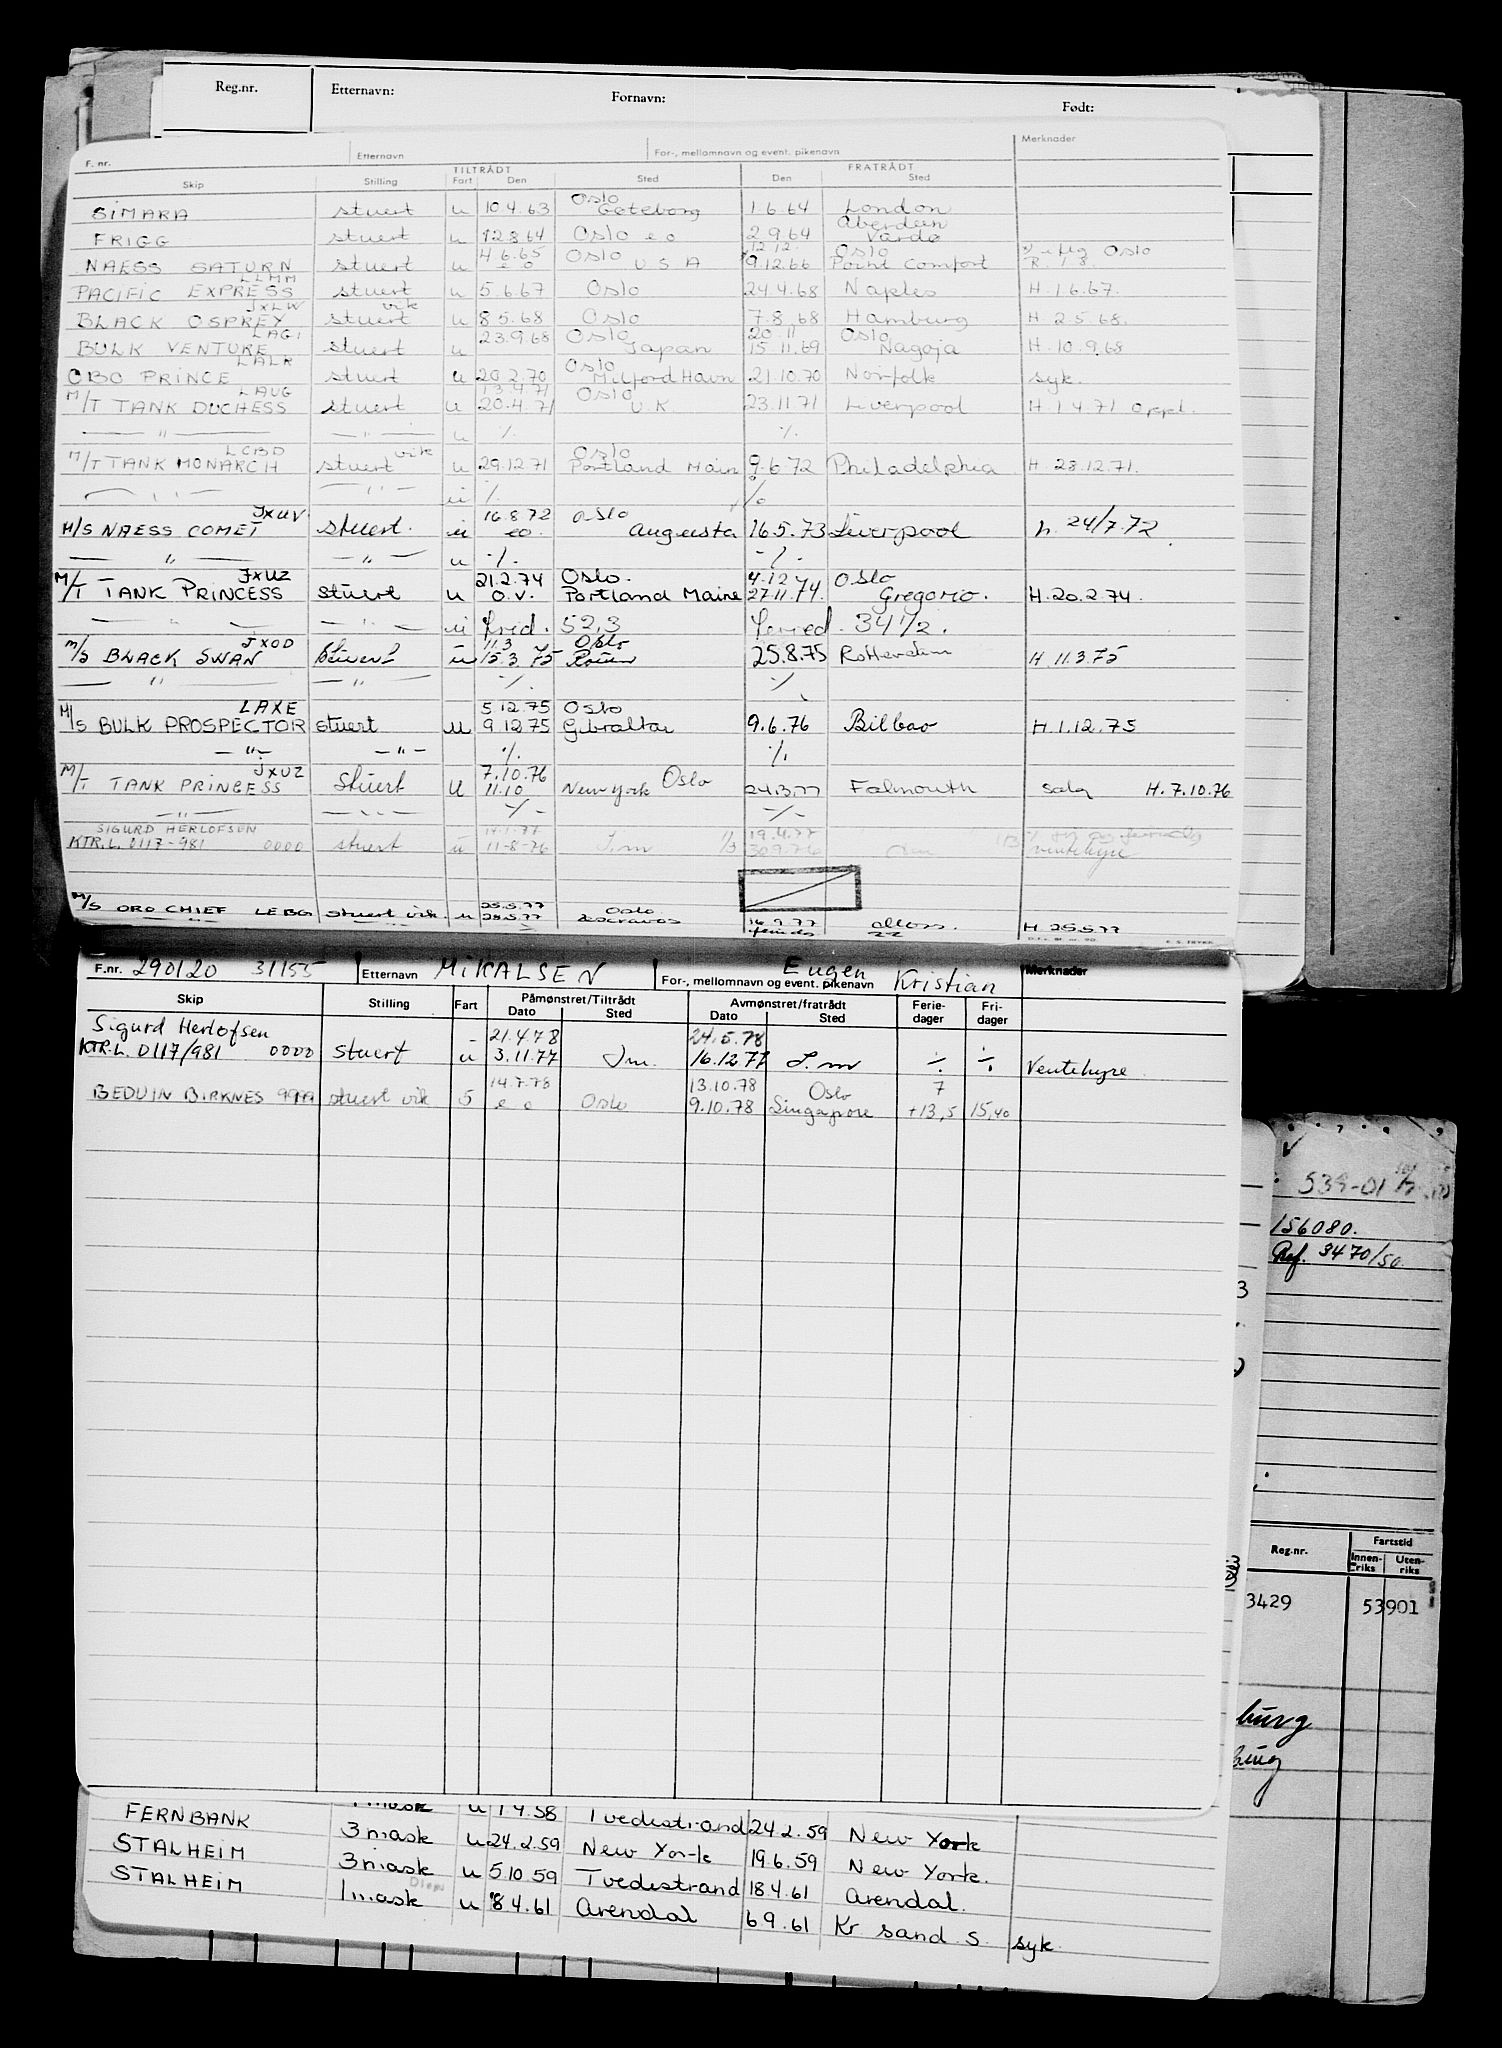 Reg.nr. Etternavn: Fornavn: Født:
F. nr. Etternavn For-, mellomnavn og event. pikenavn Merknader
TILTRÅDT FRATRÅDT
Skip Stilling Fart Den Sted Den Sted
Oslo
SIMARA stuert u 10.4.63 Göteborg 1.6.64 London
Aberdeen
FRIGG stuert u 12.8.64 Oslo e.o 2.9.64 Vardø
4.6.65 Oslo 12.12. Oslo
NAESS SATURN stuert u e.o U S A 9.12.66 Point Comfort
LLMM
PACIFIC EXPRESS stuert u 5.6.67 Oslo 24.4.68 Naples H. 1.6.67.
JXLW vik
BLACK OSPREY stuert u 8.5.68 Oslo 7.8.68 Hamburg H 2.5.68.
LAGI 23.9.68 Oslo 20 11 Oslo
BULK VENTURE stuert u Japan 15.11.69 Nagoja H. 10.9.68
LALR Oslo
OBO PRINCE stuert u 20.2.70 Milford Havn 21.10.70 Norfolk syk.
LAUG 13.4.71 Oslo
M/T TANK DUCHESS stuert u 20.4.71 U.K 23.11.71 Liverpool H 1.4.71 oppl.
— " — — " — u %. %.
LCBD vik Oslo
M/T TANK MONARCH stuert u 29.12.71 Portland Main 9.6.72 Philadelphia H 28.12.71.
— " — — " — u %. %
JXUV 16.8.72 Oslo
M/S NAESS COMET stuert. u eo. Augusta 16.5.73 Liverpool h. 24/7.72
— " — — " — u %. %.
JXUZ 21.2.74 Oslo. 4.12 Oslo
M/T TANK PRINCESS stuert u O.V. Portland Maine 27.11.74. Gregorio. H.20.2.74.
" — " — u frid. 52,3 34 1/2.
JXOD 11.3 Oslo
M/S BLACK SWAN stuert u 15.3.75 Rouen 25.8.75 Rotterdam H 11.3.75
— " — — " — %. %.
LAXE 5.12.75 Oslo
M/S BULK PROSPECTOR stuert u 9.12.75 Gibraltar 9.6.76 Bilbao H 1.12.75
— " — — " — %. %.
JXUZ 7.10.76 Oslo
M/T TANK PRINCESS stuert u 11.10 New York 24.3.77 Falmouth salg H. 7.10.76
— " — %. %.
SIGURD HERLOFSEN 19.4.77
KTR.L. 0117-981 0000 stuert u 11-8-76 30.9.76 ventehyre
25.5.77 Oslo
M/S OBO CHIEF LEBG stuert vik. u 16.9.77 H 25.5.77
F.nr. 290120 31155 Etternavn MIKALSEN For-, mellomnavn og event. pikenavn Eugen Kristian Merknader
Skip Stilling Fart Påmønstret/Tiltrådt Avmønstret/fratrådt Ferie- Fri-
Dato Sted Dato Sted dager dager
Sigurd Herlofsen 21.4.78 24.5.78
KTR.L. 0117/981 0000 stuert u 3.11.77 16.12.77 ÷ ÷ Ventehyre
14.7.78 13.10.78 Oslo 7
BEDUIN BIRKNES 9999 stuert vik 5 e o Oslo 9.10.78 Singapore +13,5 15,40
156080.
Ref. 3470/50
3
Reg.nr. Fartstid
Innen-riks Uten-riks
3429 53901
burg
FERNBANK u 1.4.58 Tvedestrand 24.2.59 New York
STALHEIM 3 mask u 24.2.59 New York 19.6.59 New York.
STALHEIM 3 mask u 5.10.59 Tvedestrand 18.4.61 Arendal.
1 mask u 8.4.61 Arendal 6.9.61 Kr sand. S. syk.